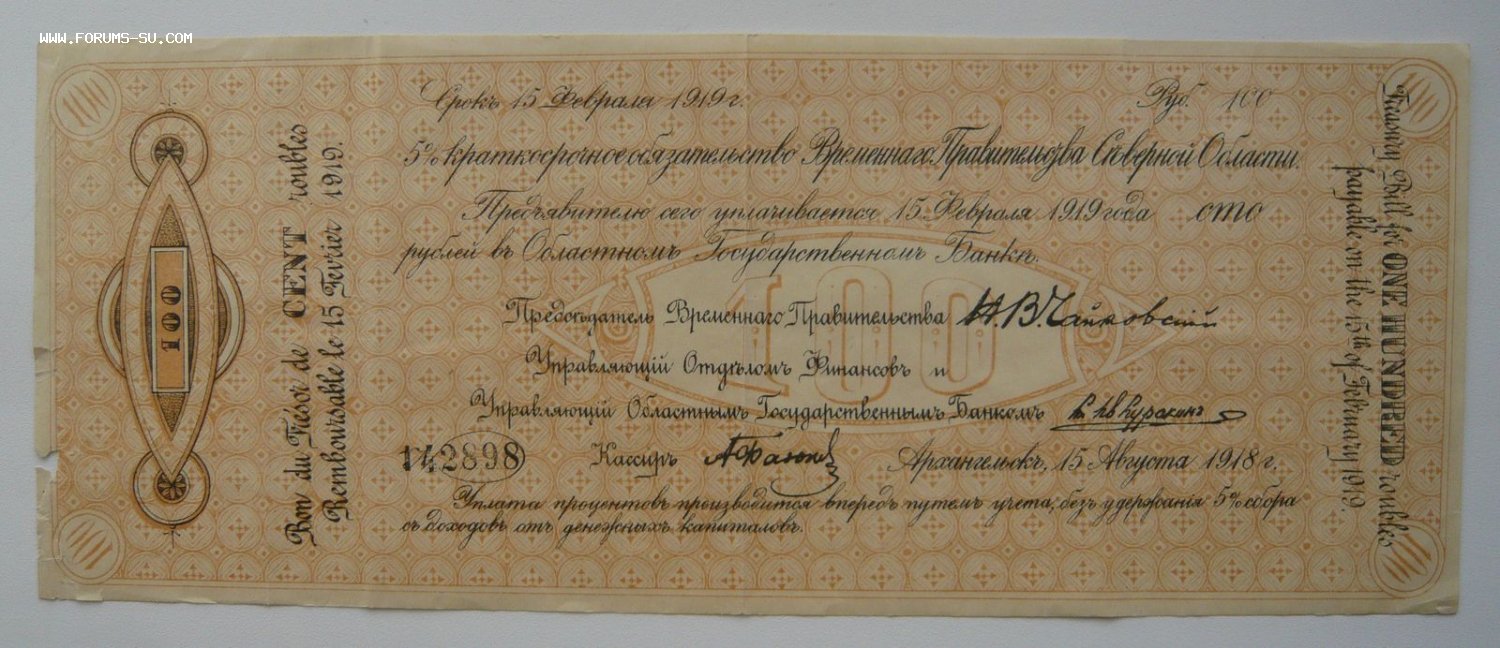 WWW.FORUMS-SU.COM
Срокъ 15 Февраля 1919 г. Руб. 100
5% краткосрочное обязательство Временнаго Правительства Сѣверной Области.
Предъявителю сего уплачивается 15 Февраля 1919 года сто
рублей въ Областномъ Государственномъ Банкѣ.
100
Предсѣдатель Временнаго Правительства Н.В. Чайковский
Управляющій Отдѣломъ Финансовъ и
Управляющій Областнымъ Государственнымъ Банкомъ
142898 Кассиръ
Архангельскъ, 15 Августа 1918 г.
Уплата процентовъ производится впередъ путемъ учета, безъ удержанія 5% сбора
съ доходовъ отъ денежныхъ капиталовъ.
100
Bon du Trésor de CENT roubles
Remboursable le 15 Fevrier 1919.
Treasury Bill for ONE HUNDRED roubles
payable on the 15th of February 1919.
100
100
100
100